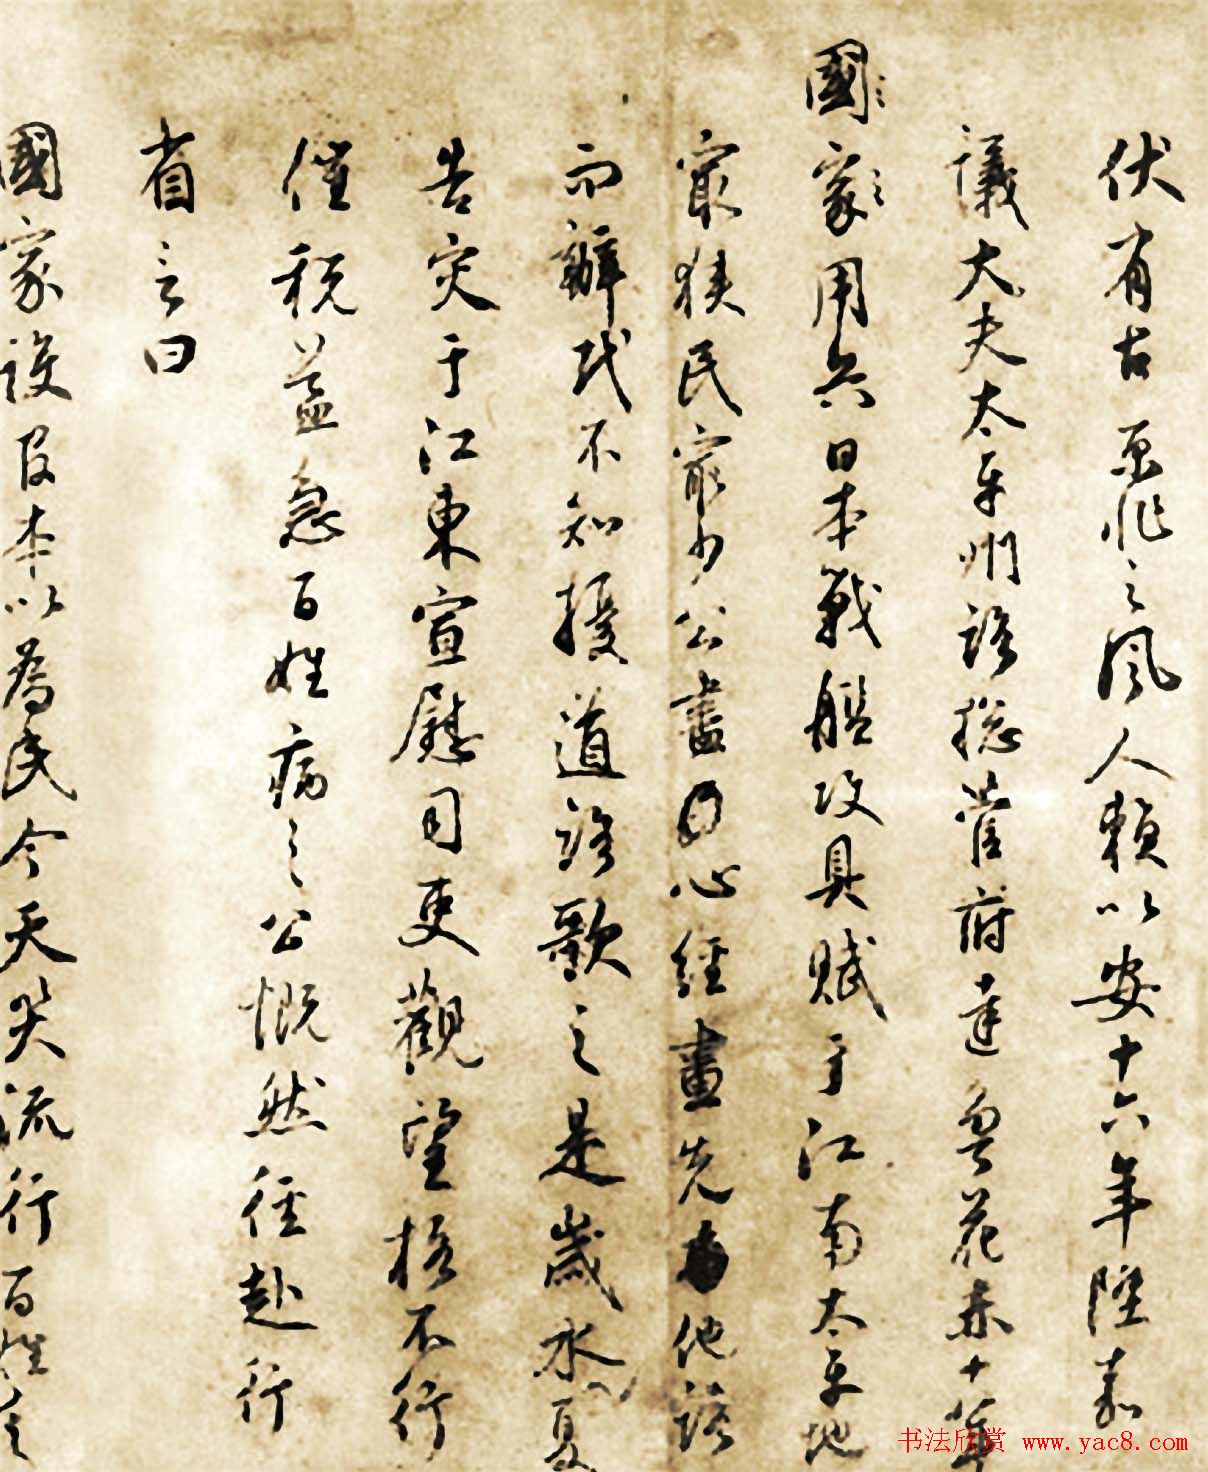 伏有古惡非之風人賴以安十六年陞嘉
議大夫太平州路總管府達魯花赤十八年
國家用兵日本戰艦攻具賦于江南太平地
最狹民最少公盡心經畫先他路
而辦民不知擾道路歌之是歲水夏
告灾于江東宣慰司吏觀望格不行
催稅益急百姓病之公慨然徑赴行
省言曰
國家設官本以為民今天災流行百姓之
书法欣赏 www.yac8.com